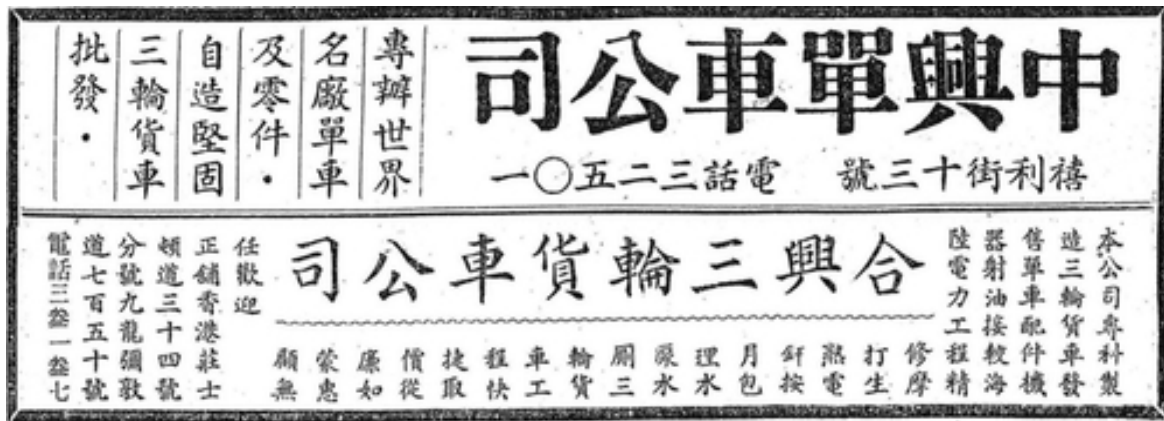 中興單車公司
禧利街十三號 電話三二五〇一
專辦世界
名廠單車
及零件·
自造堅固
三輪貨車
批發·
本公司專科製
造三輪貨車發
售單車配件機
器射油接較海
陸電力工程精
合興三輪貨車公司
修摩
打生
熱電
釬按
月包
理水
泵水
厠三
輪貨
車工
程快
捷取
價從
廉如
蒙惠
顧無
任歡迎
正舖香港莊士
頓道三十四號
分號九龍彌敦
道七百五十號
電話三叁一叁七